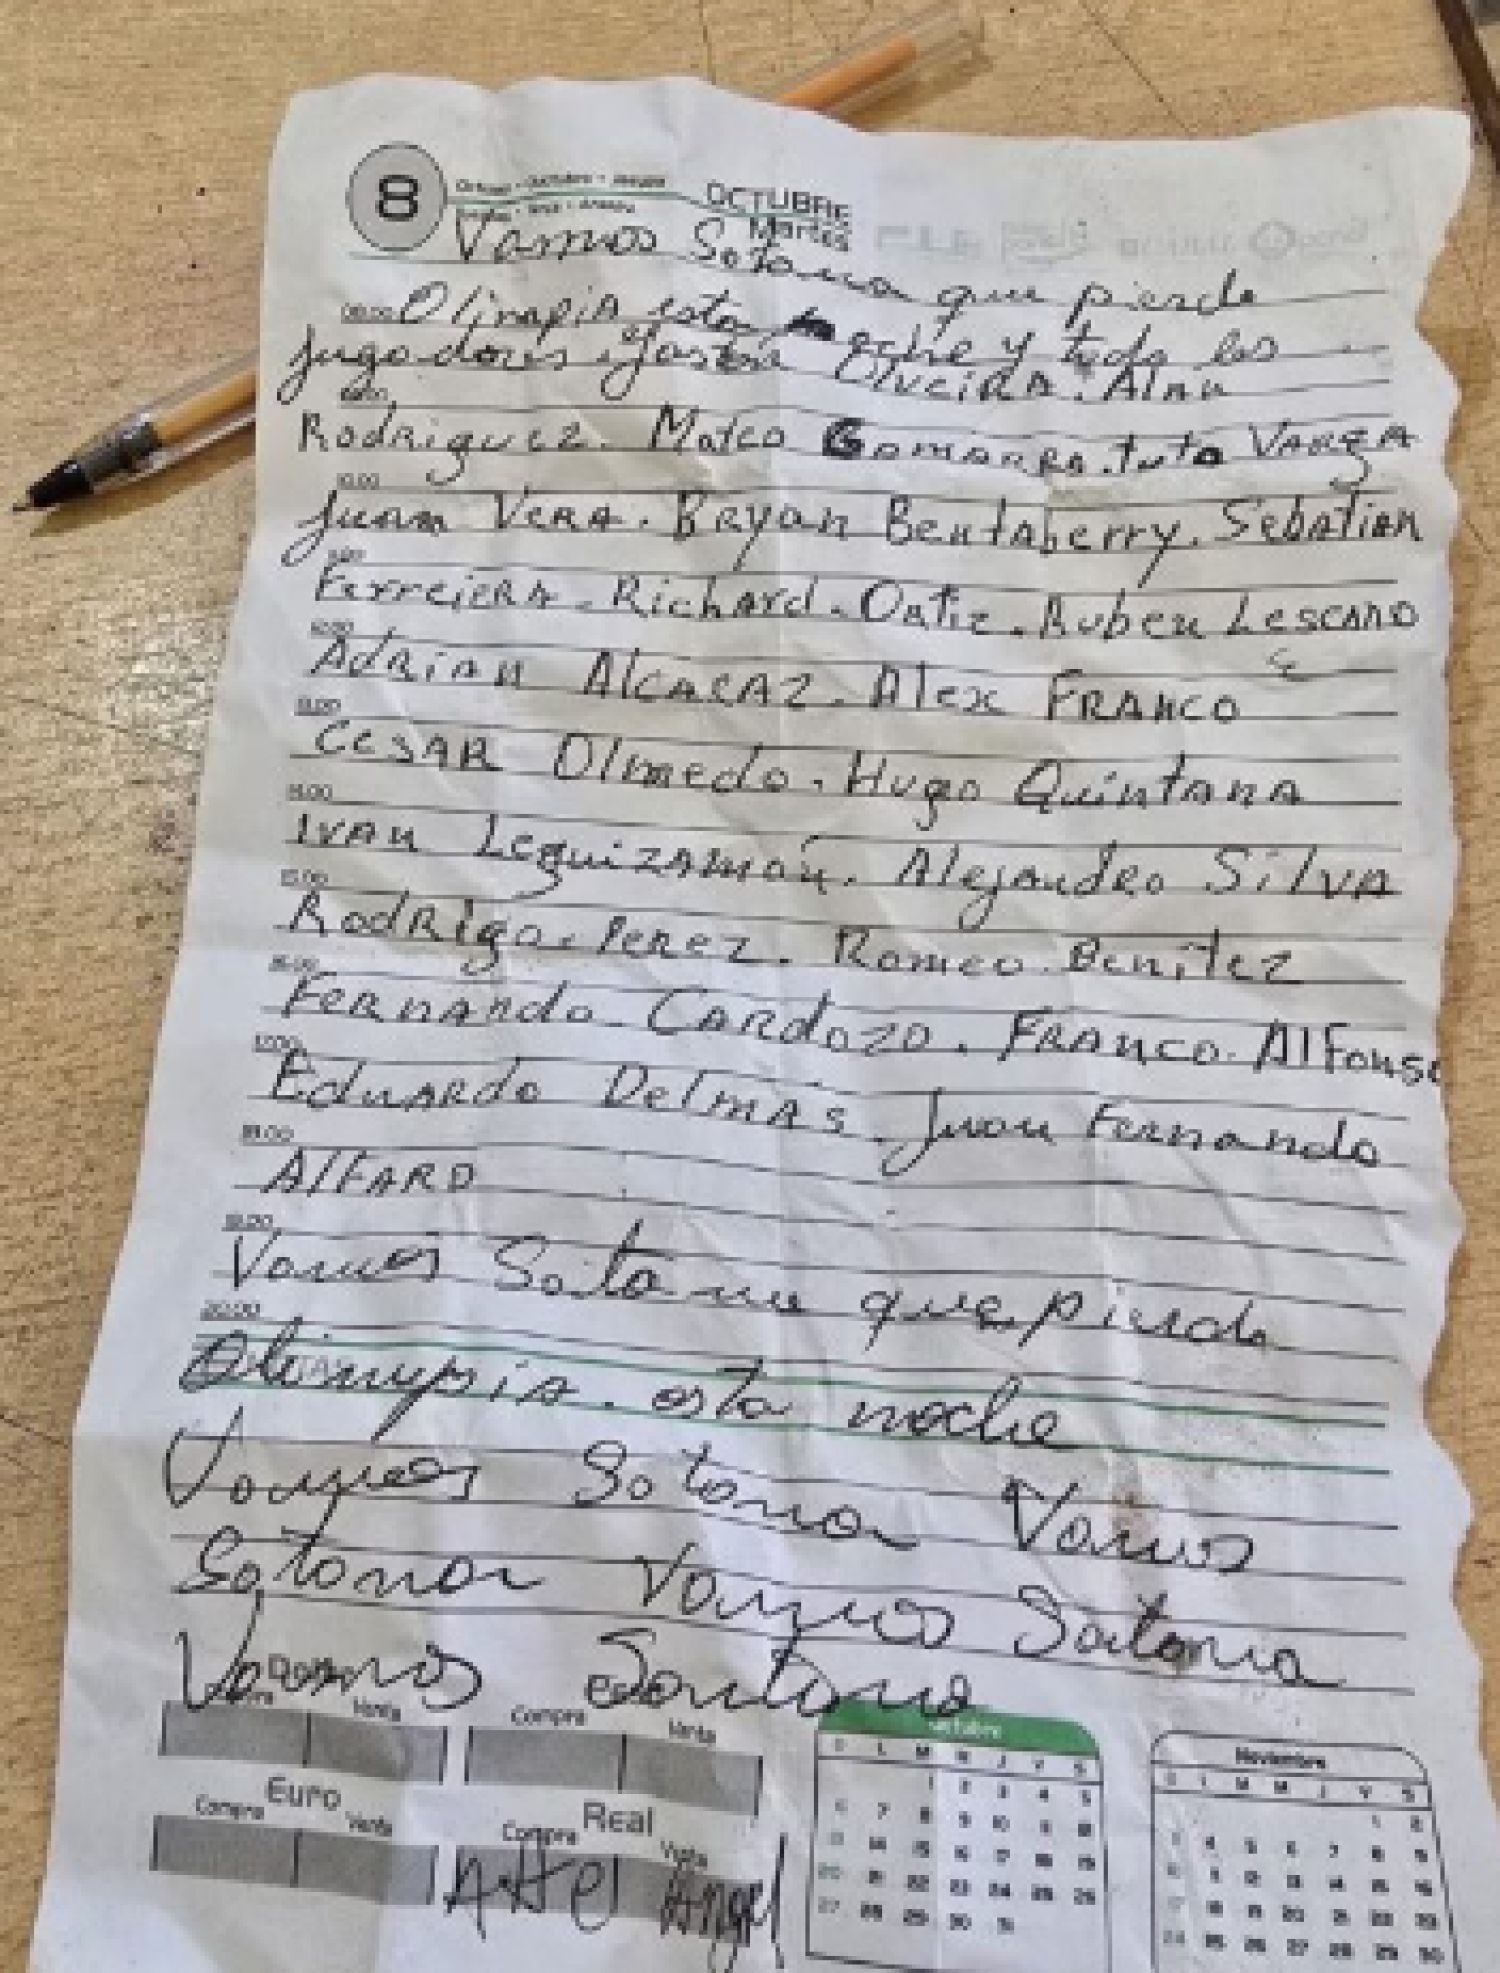 8
OCTUBRE
Martes
Vamos Satana que pierda
Olimpia esta noche y todo los
jugadores Gaston Olveira. Alan
Rodriguez. Mateo Gamarra. tuto Varga
10.00
Juan Vera. Bryan Bentaberry. Sebatian
11.00
Ferreiera. Richard. Ortiz. Ruben Lescano
12.00
Adrian Alcaraz. Alex Franco
13.00
Cesar Olmedo. Hugo Quintana
14.00
Ivan Leguizamón. Alejandro Silva
15.00
Rodrigo. Perez. Romeo. Benitez
16.00
Fernando Cardozo. Franco. Alfonso
17.00
Eduardo Delmas. Juan Fernando
18.00
Alfaro
19.00
Vamos Satana que pierda
20.00
Olimpia. esta noche
Vamos Satana Vamos
Satana Vamos Satana
Vamos Santana
Venta Compra Venta
Euro Real
Compra Venta Compra Venta
Angel
Octubre
D L M M J V S
1 2 3 4 5
6 7 8 9 10 11 12
13 14 15 16 17 18 19
20 21 22 23 24 25 26
27 28 29 30 31
Noviembre
D L M M J V S
1 2
3 4 5 6 7 8 9
10 11 12 13 14 15 16
17 18 19 20 21 22 23
24 25 26 27 28 29 30